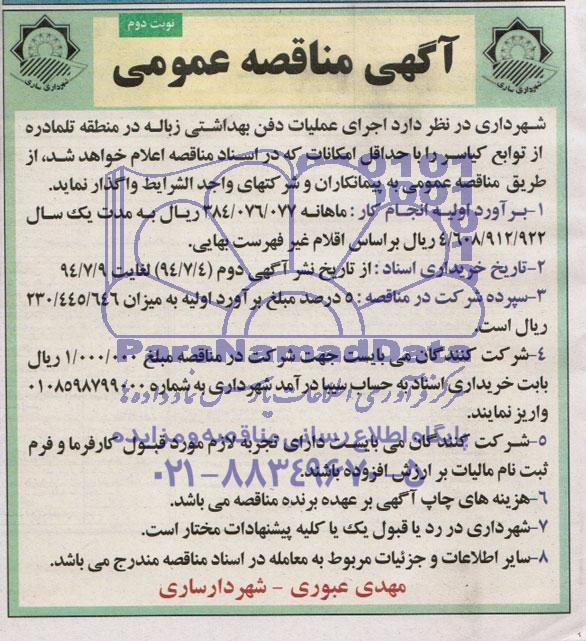 نوبت دوم
آگهی مناقصه عمومی
شهرداری ساری
شهرداری ساری
شهرداری در نظر دارد اجرای عملیات دفن بهداشتی زباله در منطقه تلمادره
از توابع کیاسر را با حداقل امکانات که در اسناد مناقصه اعلام خواهد شد، از
طریق مناقصه عمومی به پیمانکاران و شرکتهای واجد الشرایط واگذار نماید.
۱-برآورد اولیه انجام کار : ماهانه ۳۸۴/۰۷۶/۰۷۷ ریال به مدت یک سال
۴/۶۰۸/۹۱۲/۹۲۲ ریال براساس اقلام غیر فهرست بهایی.
۲-تاریخ خریداری اسناد : از تاریخ نشر آگهی دوم (۹۴/۷/۴) لغایت ۹۴/۷/۹
۳-سپرده شرکت در مناقصه : ۵ درصد مبلغ برآورد اولیه به میزان ۲۳۰/۴۴۵/۶۴۶
ریال است.
ParsNamadData
۴-شرکت کنندگان می بایست جهت شرکت در مناقصه مبلغ ۱/۰۰۰/۰۰۰ ریال
بابت خریداری اسناد به حساب سیبا درآمد شهرداری به شماره ۰۱۰۸۵۹۸۷۹۹۰۰۰
واریز نمایند.
پایگاه اطلاع رسانی مناقصه و مزایده
۵-شرکت کنندگان می بایست دارای تجربه لازم مورد قبول کارفرما و فرم
ثبت نام مالیات بر ارزش افزوده باشند.
۰۲۱-۸۸۳۴۹۶۷۰-۵
۶-هزینه های چاپ آگهی بر عهده برنده مناقصه می باشد.
۷-شهرداری در رد یا قبول یک یا کلیه پیشنهادات مختار است.
۸-سایر اطلاعات و جزئیات مربوط به معامله در اسناد مناقصه مندرج می باشد.
مهدی عبوری - شهردار ساری